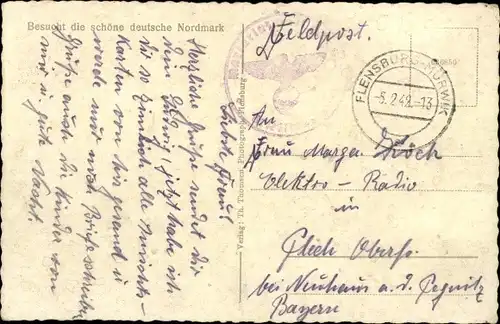 Besucht die schöne deutsche Nordmark
Liebste Frau!
Herzliche Grüße sendet dir
dein Ludwig, jetzt habe ich
dir so ziemlich alle Ansichts-
karten von hier gesand u
werde nun mal Briefe schreiben
Grüße auch die Kinder von
mir u gute Nacht.
Verlag: Th. Thomsen, Photograph, Flensburg
Feldpost.
FLENSBURG-MÜRWIK
-5.2.42.-13
An
Frau Marga Koch
Elektro-Radio
in
Bei Neuhaus a. d. Pegnitz
Bayern